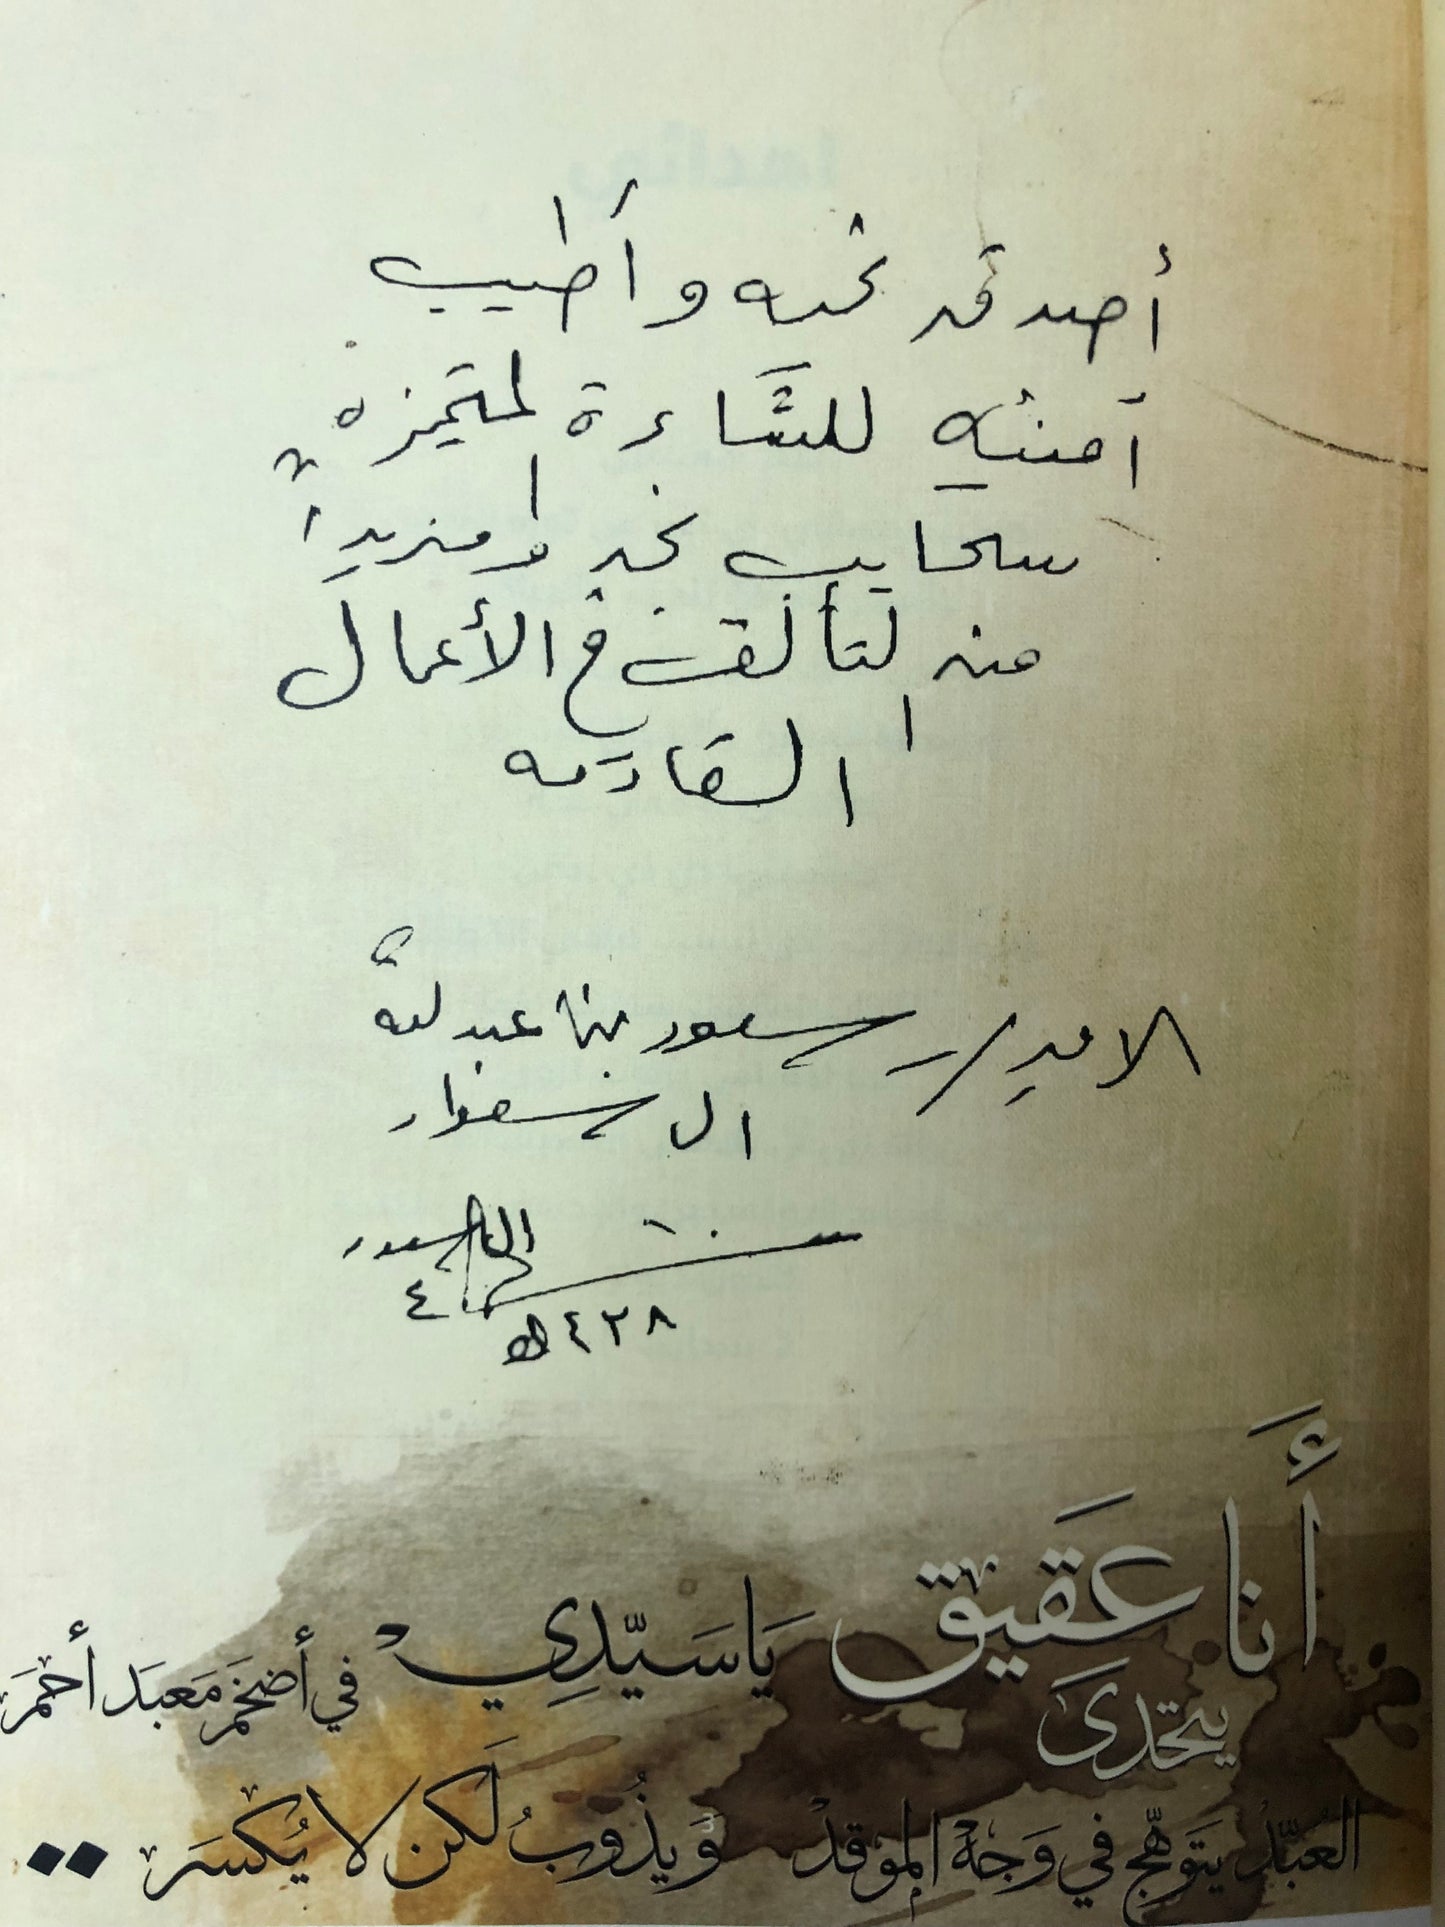 أصدق تحيه وأطيب
أمنيه للشَّاعرة المتميزه
سحايب نجد ومزيداً
من التألق في الأعمال
القادمه
الامير سعود بن عبدالله
ال
١٤٢٨هـ
أَنا عَقِيق يَاسَيّدِي في أضخَم مَعبَد أحمَر
يتحدى
العُبّد يتَوهّج في وَجهْ الموقدْ وَيذُوبُ لَكن لا يُكسَر ..